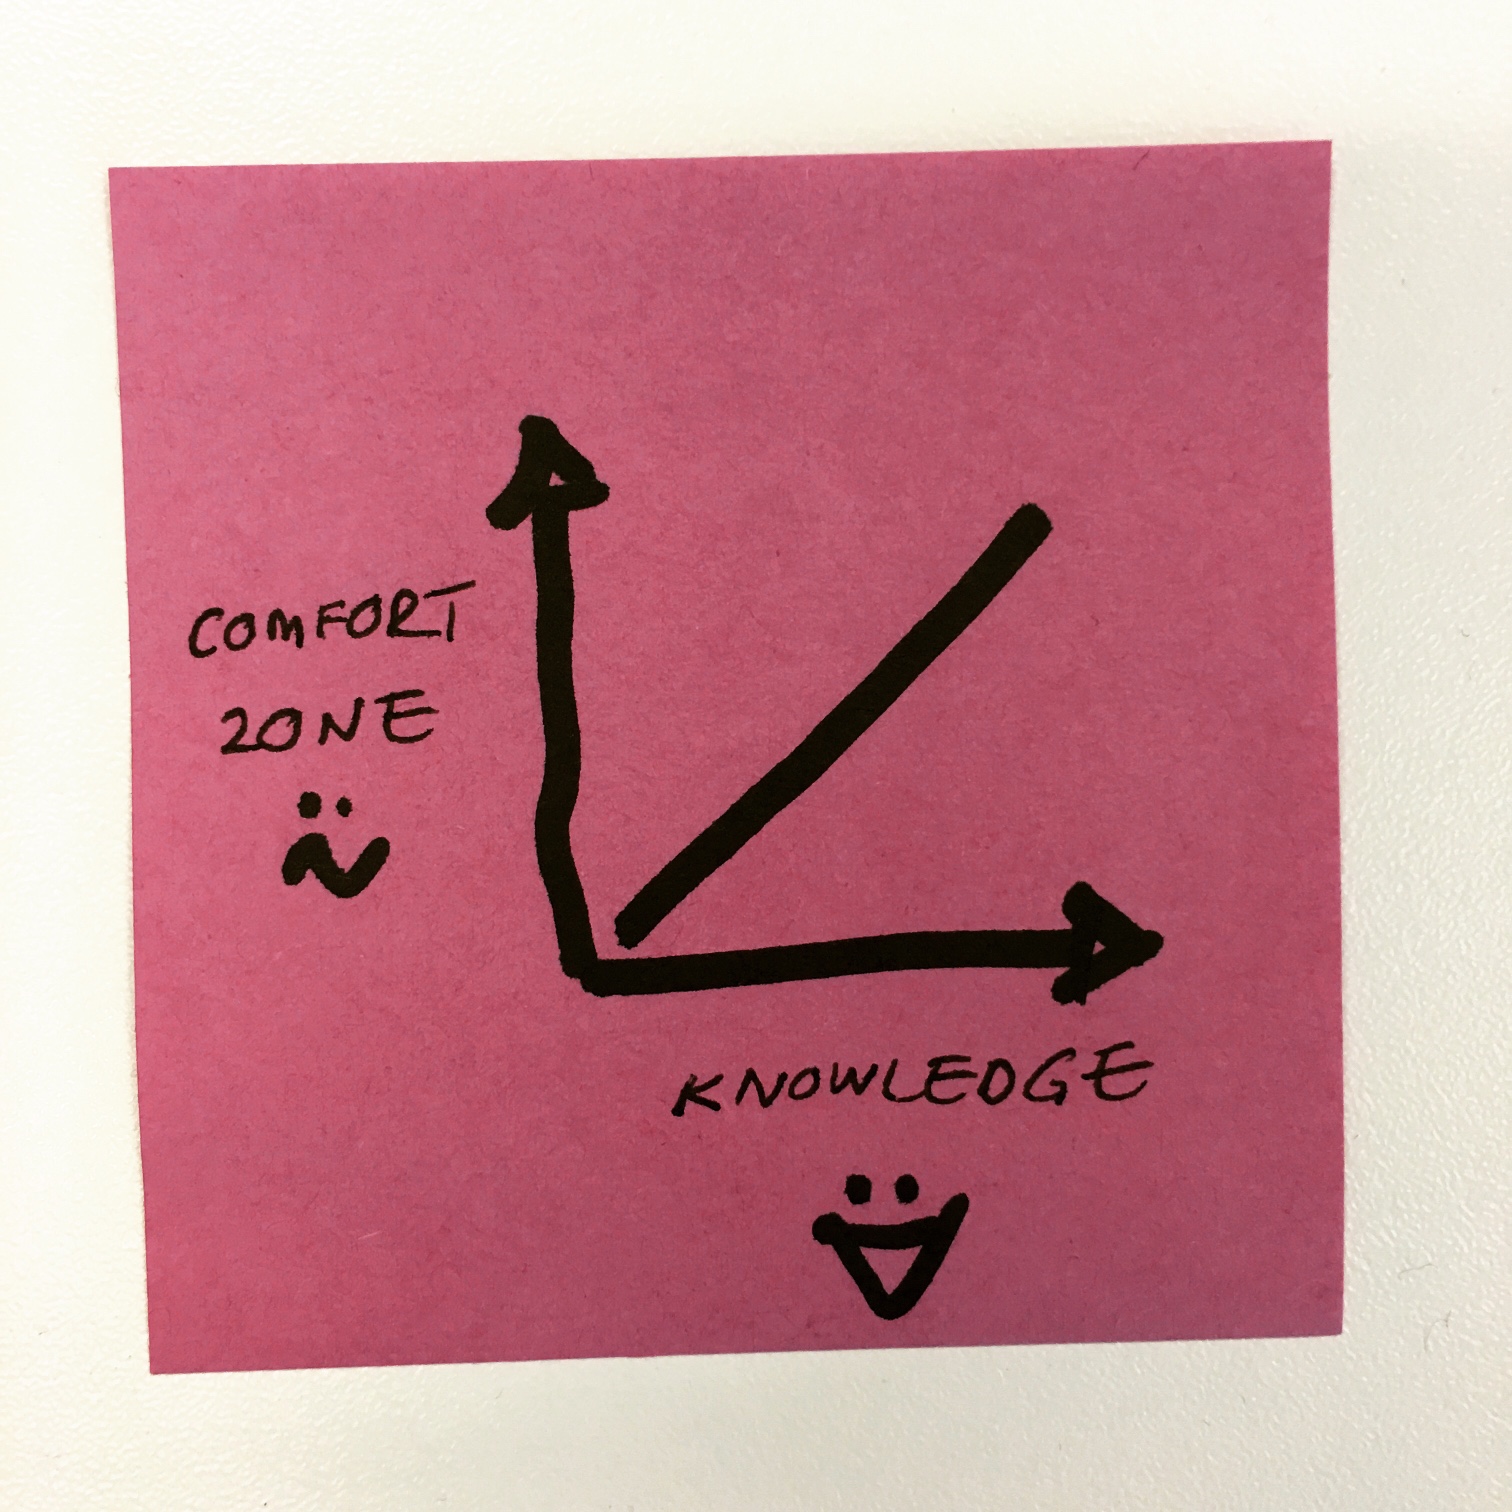 COMFORT
ZONE
KNOWLEDGE